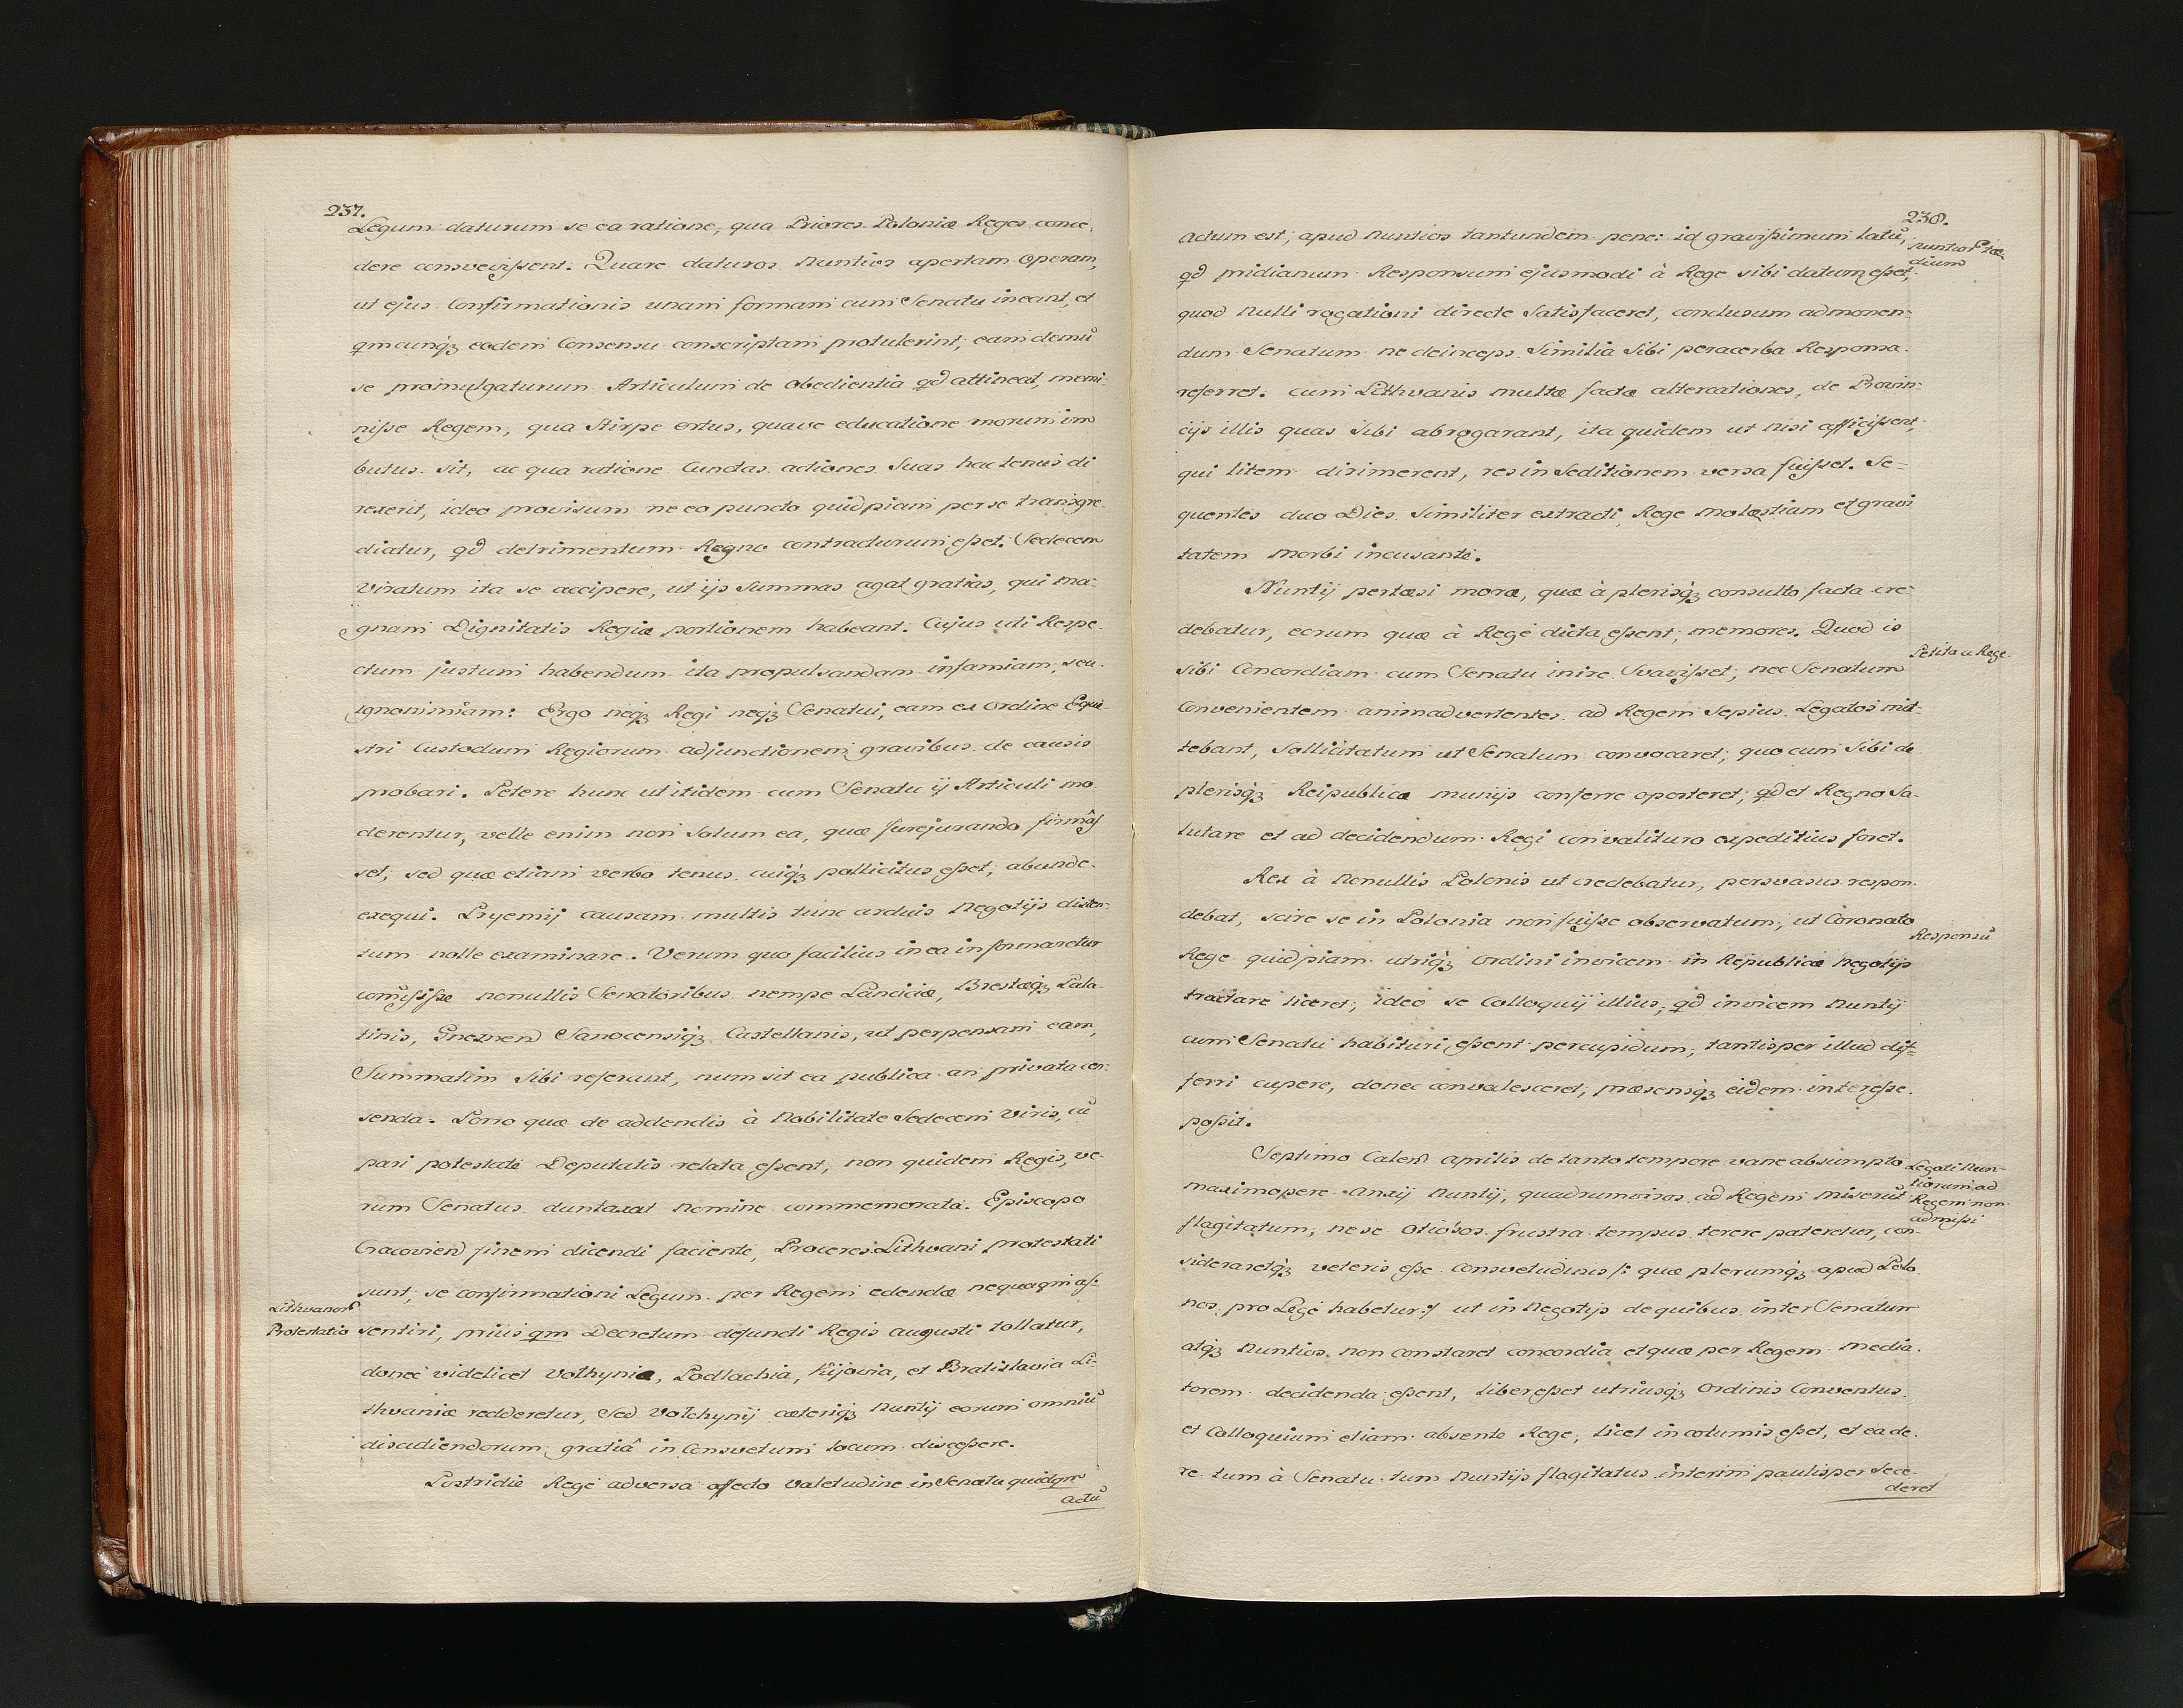 237.
Legum daturum se ea ratione, qua Priores Poloniæ Reges conce-
dere consvevissent. Quare daturos Nuntios apertam operam,
ut ejus Confirmationis unam formam cum Senatu ineant, et
qmcunq₃ eodem Consensu conscriptam protulerint, eam demū
se promulgaturum Articulum de obedientia qd attineat, memi-
nisse Regem, qua Stirpe ortus, quave educatione morum im
butus sit, ac qua ratione Cunctas actiones Suas hactenus di
rexerit, ideo provisum ne eo puncto quidpiam per se transgre
diatur, qd detrimentum Regno contracturum esset. Sedecem
Viratum ita se accipere, ut ijs Summas agat gratias, qui ma-
gnam Dignitatis Regiæ portionem habeant. Cujus uti Respe-
ctum justum habendum ita propulsandam infamiam, seu
ignonimiam: Ergo neq₃ Regi neq₃ Senatui, eam ex ordine Eque-
stri Custodum Regiorum adjunctionem gravibus de causis
probari. Petere hunc ut itidem cum Senatu ij Articuli mo
derentur, velle enim non Solum ea, quæ Jurejurando firmâs
set, sed quæ etiam verbo tenus cuiq₃ pollicitus esset, abunde
exequi. Pryemij causam multis tunc arduis Negotijs disten-
tum nolle examinare. Verum quo facilius in ea informaretur
com̄isisse nonullis Senatoribus nempe Lanciciæ, Brestæq₃ Pala
tinis, Gneznen Sanocensiq₃ Castellanis, ut perpensam eam,
Summatim Sibi referant, num sit ea publica an privata cen-
senda. Porro quæ de addendis à Nobilitate Sedecem Viris, cū
pari potestate Deputatis relata essent, non quidem Regis, ve-
rum Senatus duntaxat Nomine commemorata. Episcopo
Cracovien finem dicendi faciente, Proceres Lithvani protestati
sunt, se confirmationi Legum per Regem edendæ nequaqm as-
Lithvanor
Protestatio
sentiri, prius qm Decretum defuncti Regis Augusti tollatur,
donec videlicet Volhynia, Podlachia, Kijovia, et Bratislavia Li-
thvaniæ redderetur, Sed Volchynij cæteriq₃ Nuntij eorum omniū
discutiendorum gratiâ in Consvetum locum discessere.
Postridie Rege adversa affecto Valetudine in Senatu quidqm
actū
238.
Actum est, apud Nuntios tantundem pene: id gravissimum latū,
Nuntior tæ-
dium
qd pridianum Responsum ejusmodi à Rege sibi datum esset,
quod Nulli rogationi directe Satisfaceret, conclusum admonen-
dum Senatum ne deinceps Similia Sibi peracerba Responsa
referret. Cum Lithvanis multæ factæ altercationes, de Provin-
cijs illis quas Sibi abrogarant, ita quidem ut nisi affuissent,
qui litem dirimerent, res in Seditionem versa fuisset. Se-
quentes duo Dies Similiter extracti, Rege Molestiam et gravi
tatem Morbi incusante.
Nuntij pertæsi moræ, quæ à plerisq₃ consulto facta cre-
debatur, eorum quæ à Rege dicta essent, memores. Quod is
Petita a Rege
sibi Concordiam cum Senatu inire Svasisset, nec Senatum
Convenientem animadvertentes ad Regem Sepius Legatos mit-
tebant, Sollicitatum ut Senatum convocaret, quo cum Sibi de
plerisq₃ Reipublicæ munijs conferre oporteret, qd et Regno Sa-
lutare et ad decidendum Regi convalituro expeditius foret.
Rex à Nonullis Polonis ut credebatur, persvasus respon-
debat, scire se in Polonia non fuisse observatum, ut Coronato
Responsū
Rege quidpiam utriq₃ ordini invicem in Republicæ Negotijs
tractare liceret, ideo se Colloquij illius, qd invicem Nuntij
cum Senatu habituri essent percupidum, tantisper illud dif-
ferri cupere, donec convalesceret, præsensq₃ eidem interesse
possit.
Septimo Calen Aprilis de tanto tempore vane absumpto
Legati Nun-
tiorum ad
Regem non
admissi
maximopere Anxij Nuntij, quadrumviros ad Regem miserūt
flagitatum, ne se otiosos frustra tempus terere pateretur, con-
sideraretq₃ veteris esse Consvetudinis /: quæ plerumq₃ apud Polo
nos pro Lege habetur :/ ut in Negotijs de quibus inter Senatum
atq₃ Nuntios non constaret concordia et quæ per Regem media-
torem decidenda essent, liber esset utriusq₃ Ordinis Conventus
et Colloquium etiam absente Rege, licet incolumis esset, et ea de
re tum à Senatu tum Nuntijs flagitatus interim paulisper sece-
deret